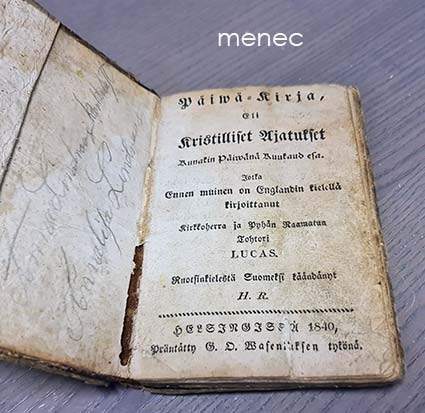 menec
Päiwä-Kirja,
Eli
Kristilliset Ajatukset
Kunakin Päiwänä Kuukaudesa.
Jotka
Ennen muinen on Englandin kielellä
kirjoittanut
Kirkkoherra ja Pyhän Raamatun
Tohtori
LUCAS.
Ruotsinkielestä Suomeksi käändänyt
H. R.
HELSINGISSÄ 1840,
Präntätty G. O. Waseniuksen tykönä.